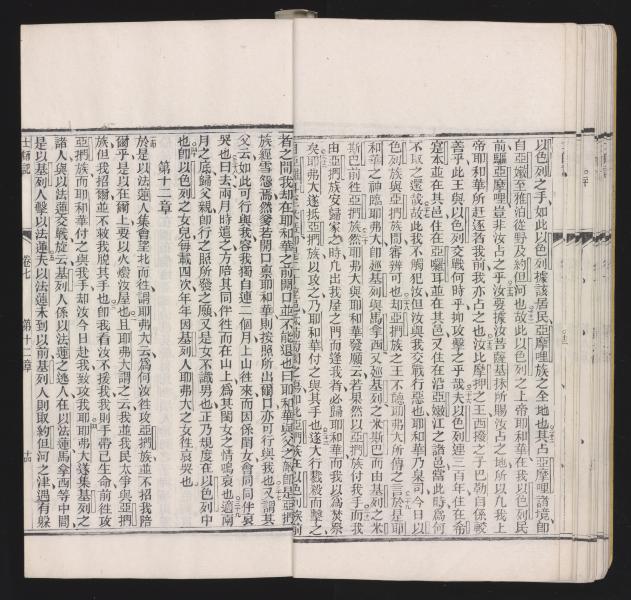 以色列之手如此以色列據該居民亞摩哩族之全地也其占亞摩哩諸境即
自亞嫩至雅泊從野及約但河也故此以色列之上帝耶和華在我以色列民
前驅亞摩哩豈非汝占之乎汝要據汝菩薩基抹所賜汝占之地所以凡我上
帝耶和華所趕逐者我前我亦占之也汝比摩押之王西撥之子巴勒自係較
善乎此王與以色列交戰何時乎抑攻擊之乎哉夫以色列連三百年住在希
實本並在其邑住在亞囉耳並在其邑又住在沿亞嫩江之諸邑當此時為何
不取之還哉故此我不觸犯汝但汝與我交戰行惡也耶和華乃臬司今日以
色列族與亞捫族間審辨可也却亞捫族之王不聽耶弗大所傳之言於是耶
和華之神臨耶弗大即巡基列與馬拿西又巡基列之米斯巴而由基列之米
斯巴前往亞捫族然耶弗大與耶和華發願云若果然以亞捫族付我手而我
由亞捫族安歸家之時凡出我屋之門而逢我者必歸耶和華而我以為焚祭
矣耶弗大遂抵亞捫族以攻之乃耶和華付之與其手也遂大行戮殺而擊之
者之間我却在耶和華之前開口並不能退也曰耶和華與父之敵即是亞捫
族經雪怨焉然爹若開口禀耶和華則按照所出爾口亦可行與我也又謂其
父云如此可行與我容我獨自連二個月上山徃來而因係閨女會同同伴哀
哭也曰去兩月時遣之方陪其同伴徃而在山上為其閨女之情嗚哀也適兩
月之底歸父親即行之照所發之願又是女不識男也正乃規度在以色列中
也即以色列之女兒每載四次年年因基列人耶弗大之女往哀哭也
第十二章
於是以法蓮人集會望北而徃謂耶弗大云為何汝徃攻亞捫族並不招我陪
爾乎是以在爾上要以火燬汝屋也且耶弗大謂之云我並我民太爭與亞捫
族但我招爾並不救我脫其手也卽我看汝不援我我則手帶已生命前徃攻
亞捫族而耶和華付之與我手却汝今日赴我致攻我耶耶弗大遂集基列之
諸人與以法蓮交戰旋云基列人係以法蓮之逃人在以法蓮馬拿西等中間
是以基列人擊以法蓮夫以法蓮未到以前基列人則取約但河之津遇有躲
士師記
卷七
第十二章